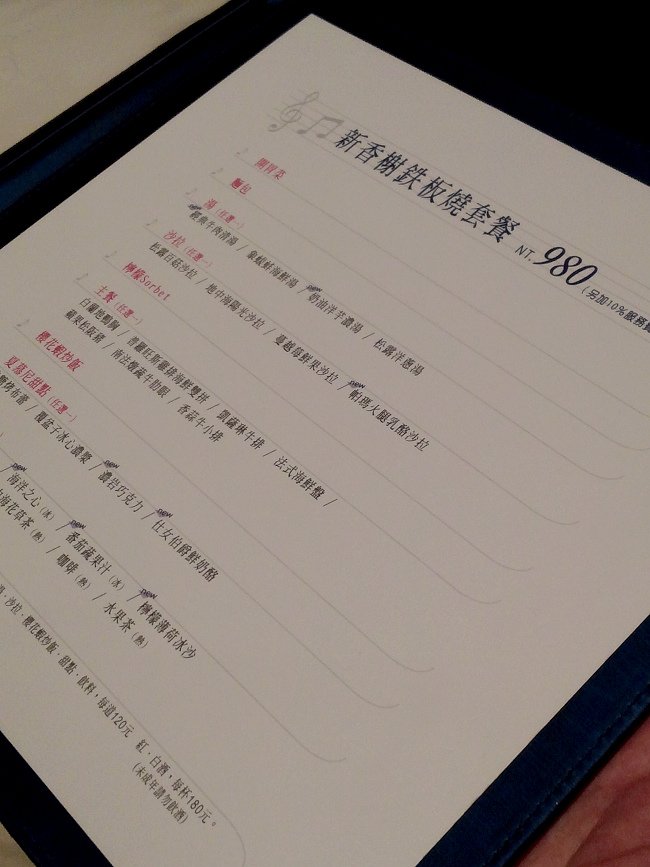 新香榭鉄板燒套餐 NT. 980 (另加10%服務費
開胃菜
麵包
湯 (任選一)
經典牛肉清湯 / 象蛾蚌海鮮湯 / NEW 奶油洋芋濃湯 / 松露洋蔥湯
沙拉 (任選一)
松露百菇沙拉 / 地中海陽光沙拉 / 蔓越莓鮮果沙拉 / NEW 帕瑪火腿乳酪沙拉
檸檬Sorbet
主餐 (任選一)
白蘭地鴨胸 / 普羅旺斯雞排海鮮雙拼 / 凱薩琳牛排 / 法式海鮮盤 /
蘋果松阪豬 / 南法燉蔬牛肋眼 / 香蒜牛小排
櫻花蝦炒飯
夏慕尼甜點 (任選一)
烤布蕾 / 覆盆子冰心濃漿 / NEW 濃岩巧克力 / NEW 仕女伯爵鮮奶酪
NEW 海洋之心 (冰) / NEW 番茄蔬果汁 (冰) / NEW 檸檬薄荷冰沙
海花草茶 (熱) / 咖啡 (熱) / 水果茶 (熱)
沙拉．櫻花蝦炒飯．甜點．飲料，每道120元 紅．白酒，每杯180元。
(未成年請勿飲酒)